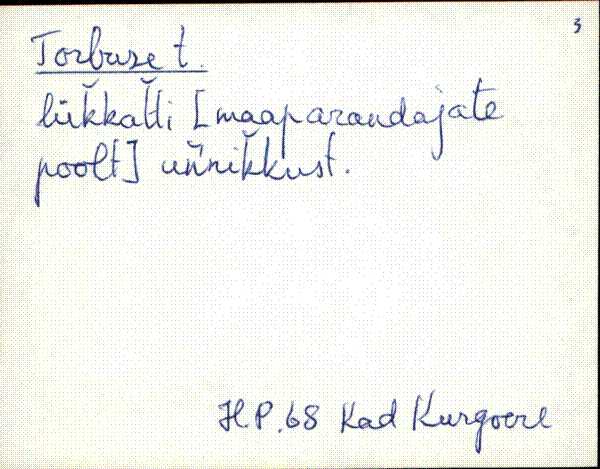 3
Torbuse t.
lük̆kat̆ti [maaparandajate
poolt] un̆nik̆kust.
H.P. 68 Kad Kurgoere